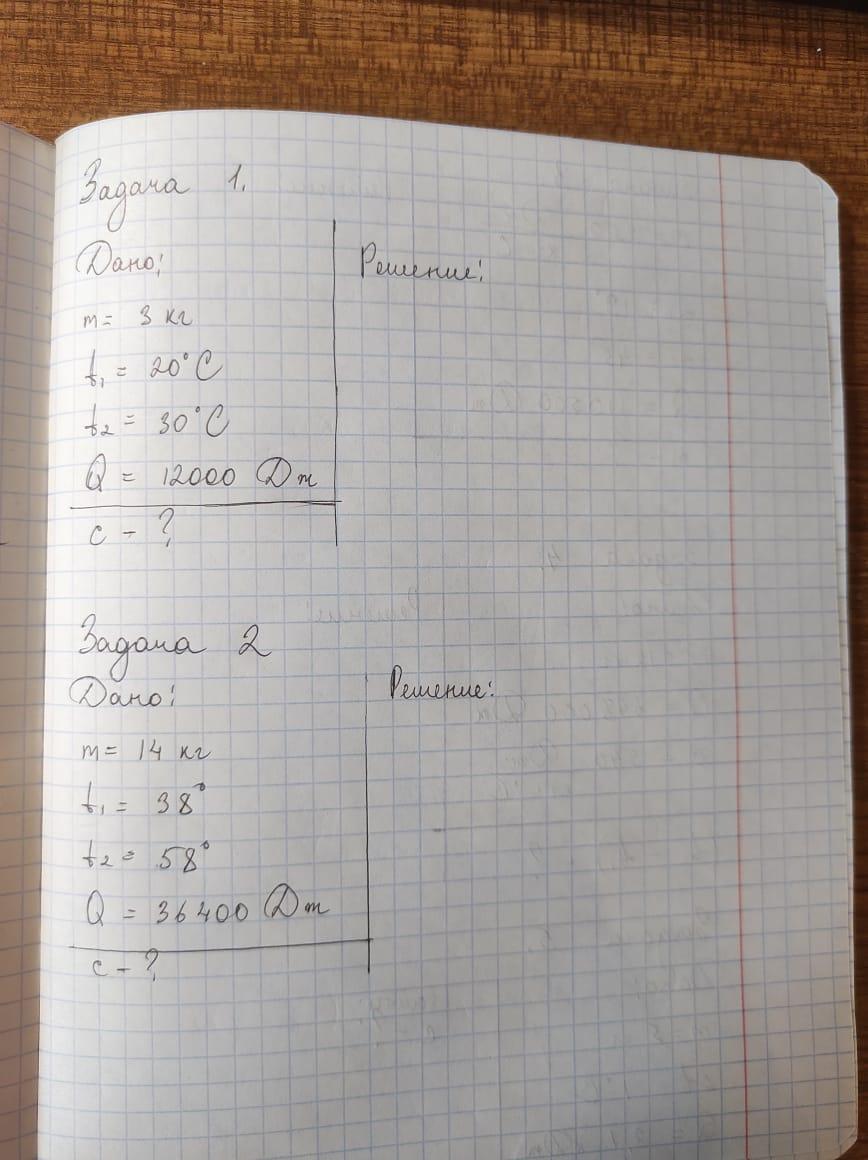 Задача 1.
Дано:
Решение:
m = 3 кг
t₁ = 20°C
t₂ = 30°C
Q = 12000 Дж
c - ?
Задача 2
Дано:
Решение:
m = 14 кг
t₁ = 38°
t₂ = 58°
Q = 36400 Дж
c - ?